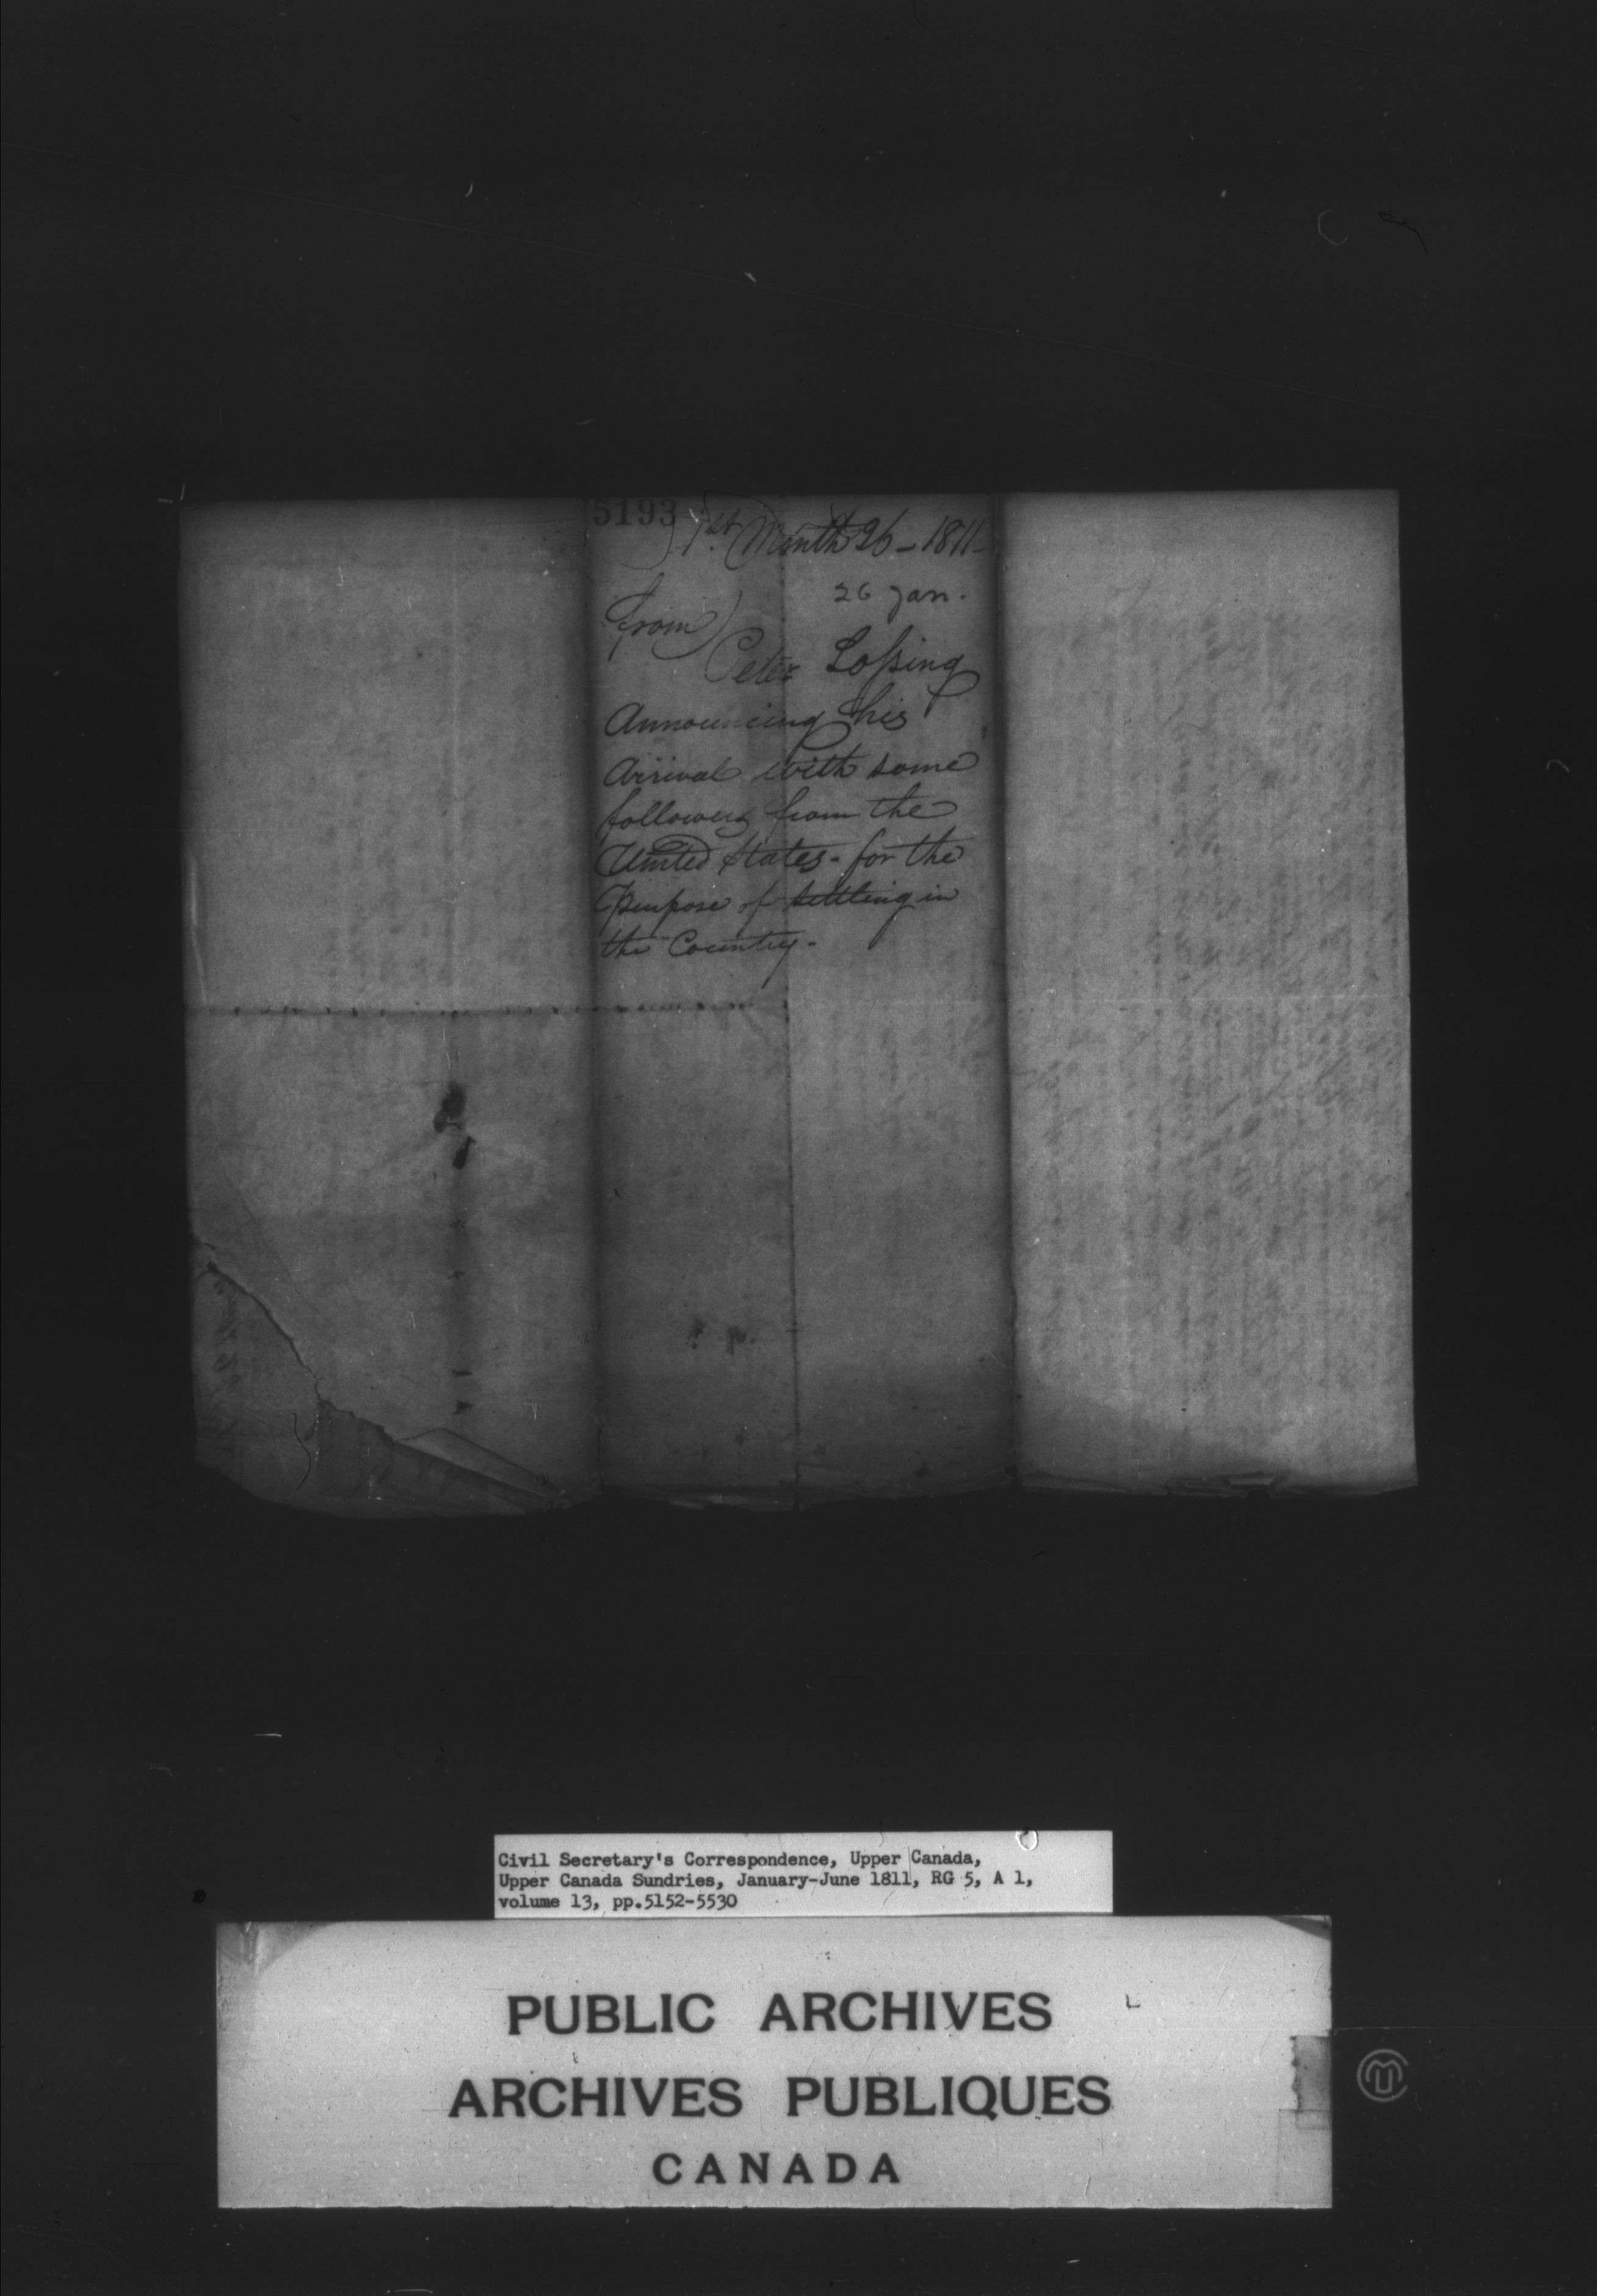 5193
1st. Month 26 - 1811 -
26 Jan.
from
Peter Loſsing
Announcing his
Arrival with some
followers from the
United States - for the
Purpose of settling in
the Country -
Civil Secretary's Correspondence, Upper Canada,
Upper Canada Sundries, January-June 1811, RG 5, A 1,
volume 13, pp.5152-5530
PUBLIC ARCHIVES
ARCHIVES PUBLIQUES
CANADA